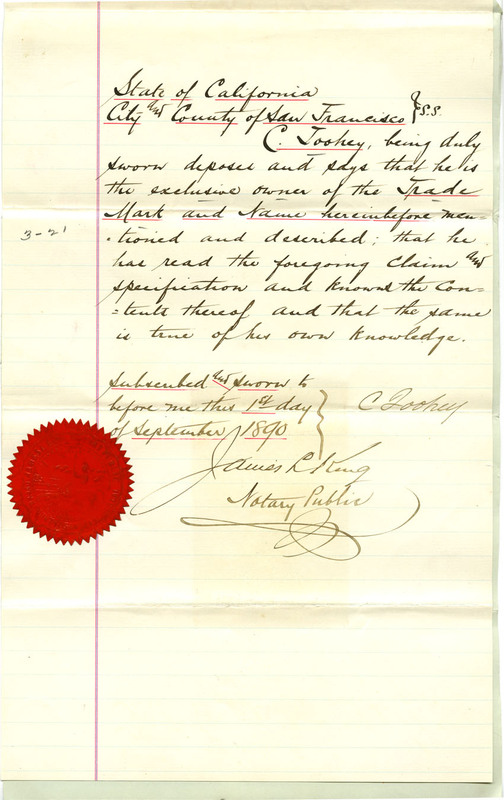 State of California
City and County of San Francisco } S.S.
C. Toohey, being duly
sworn deposes and says that he is
the exclusive owner of the Trade
Mark and Name hereinbefore men=
-tioned and described; that he
3-21
has read the foregoing Claim and
specification and knows the Con=
=tents thereof and that the same
is true of his own knowledge.
Subscribed and sworn to
before me this 1st day } C Toohey
of September 1890
James L. King
Notary Public